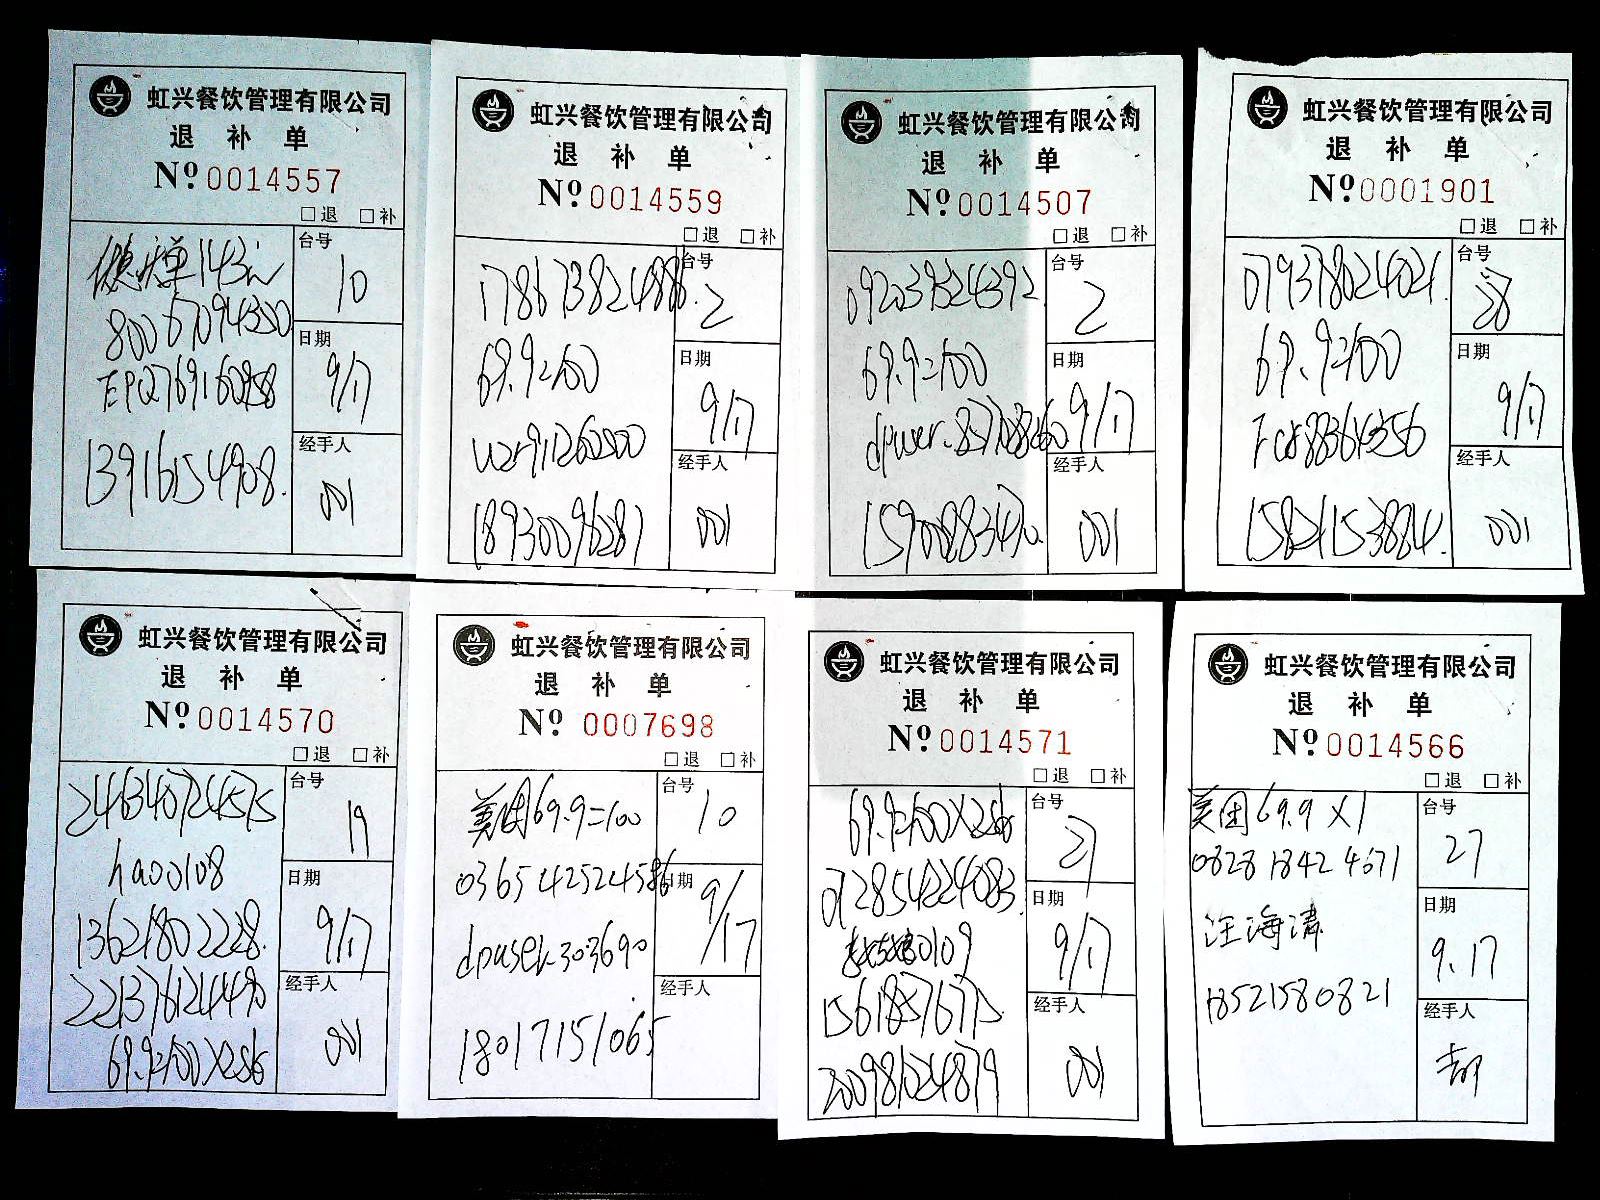 虹兴餐饮管理有限公司
退 补 单
Nº 0014557
□退 □补
台号
10
80067094300
日期
9/17
EPQ769160958
经手人
13916154908.
001
虹兴餐饮管理有限公司
退 补 单
Nº 0014559
□退 □补
台号
2
178673824886.
日期
69.9=100
9/17
经手人
18930096287
001
虹兴餐饮管理有限公司
退 补 单
Nº 0014507
□退 □补
台号
2
092039524392
日期
69.9=100
9/17
经手人
15900883490.
001
虹兴餐饮管理有限公司
退 补 单
Nº 0001901
□退 □补
台号
28
079378024021.
日期
69.9=100
9/17
经手人
15821153884.
001
虹兴餐饮管理有限公司
退 补 单
Nº 0014570
□退 □补
台号
19
246340724575
hao0108
日期
13621802228.
9/17
221376124490
经手人
69.9=100X2张
001
虹兴餐饮管理有限公司
退 补 单
Nº 0007698
□退 □补
台号
10
美团69.9=100
036542524586
日期
9/17
dpuser-303690
经手人
18017151065
虹兴餐饮管理有限公司
退 补 单
Nº 0014571
□退 □补
69.9=100X2张
台号
27
012854224083.
日期
0109
9/17
15618576775
经手人
200981524879
001
虹兴餐饮管理有限公司
退 补 单
Nº 0014566
□退 □补
美团69.9X1
台号
27
082818424671
日期
汪海清
9.17
18521580821
经手人